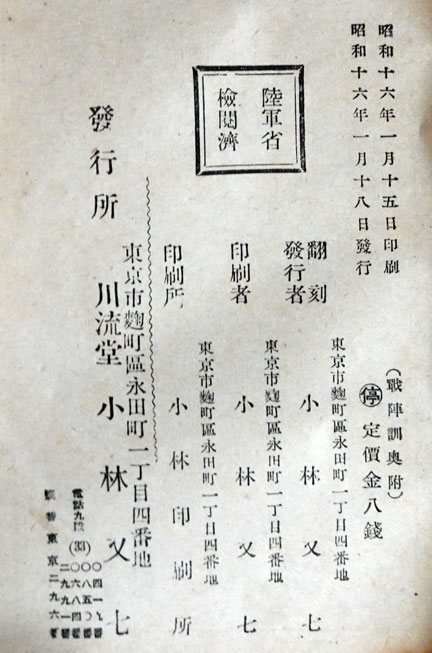 昭和十六年一月十五日印刷
昭和十六年一月十八日發行
陸軍省
檢閱濟
(戰陣訓奥附)
㊡定價金八錢
翻刻
發行者
東京市麴町區永田町一丁目四番地
小林又七
印刷者
東京市麴町區永田町一丁目四番地
小林又七
印刷所
東京市麴町區永田町一丁目四番地
小林印刷所
發行所
東京市麴町區永田町一丁目四番地
川流堂小林又七
電話九段(33)
振替東京二九六番